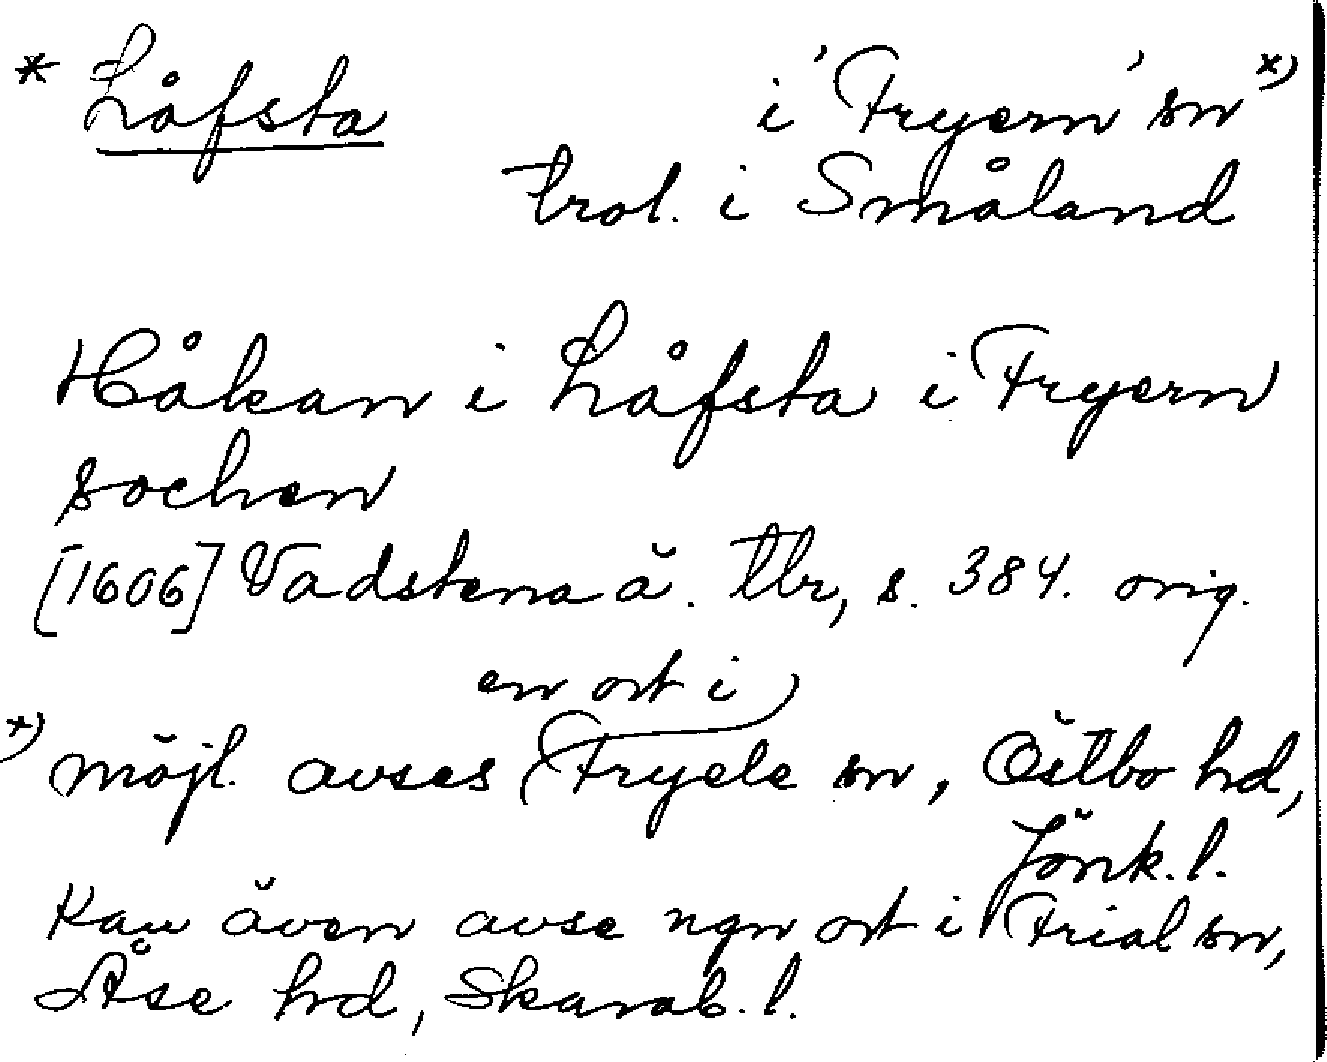 * Låfsta i 'Fryern' sn *)
trol. i Småland
Håkan i Låfsta i Fryern
sochen
[1606] Vadstena ä. tbr, s. 384. orig.
en ort i
*) möjl. avses Fryele sn, Östbo hd,
Jönk. l.
Kan även avse ngn ort i Friel sn,
Åse hd, Skarab. l.